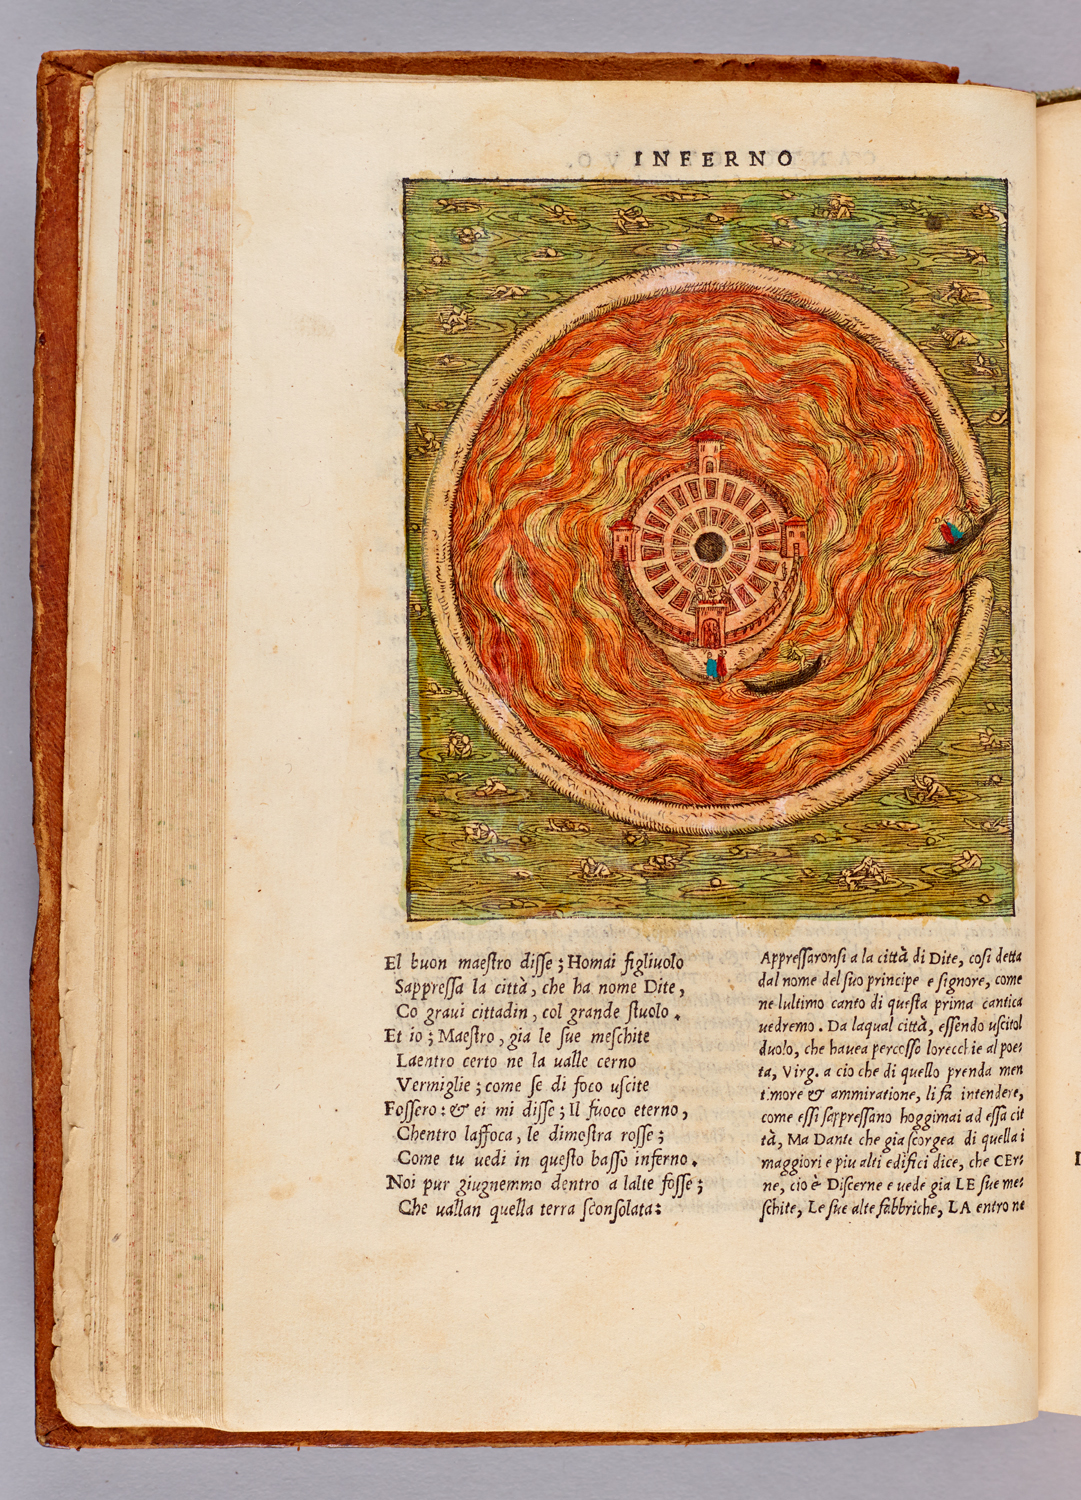 INFERNO
El buon maeſtro diſſe; Homai figliuolo
Sappreſſa la città, che ha nome Dite,
Co graui cittadin, col grande ſtuolo.
Et io; Maeſtro, gia le ſue meſchite
Laentro certo ne la ualle cerno
Vermiglie; come ſe di foco uſcite
Foſſero: & ei mi diſſe; Il fuoco eterno,
Chentro laffoca, le dimoſtra roſſe;
Come tu uedi in queſto baſſo inferno.
Noi pur giugnemmo dentro a lalte foſſe;
Che uallan quella terra ſconſolata:
Appreſſaronſi a la città di Dite, coſi detta
dal nome del ſuo principe e ſignore, come
ne lultimo canto di queſta prima cantica
uedremo. Da laqual città, eſſendo uſcitol
duolo, che hauea percoſſo lorecchie al poe-
ta, Virg. a cio che di quello prenda men
timore & ammiratione, li fa intendere,
come eſſi ſappreſſano hoggimai ad eſſa cit
tà, Ma Dante che gia ſcorgea di quella i
maggiori e piu alti edifici dice, che CEr-
ne, cio è Diſcerne e uede gia LE ſue meſ-
ſchite, Le ſue alte fabbriche, LA entro ne